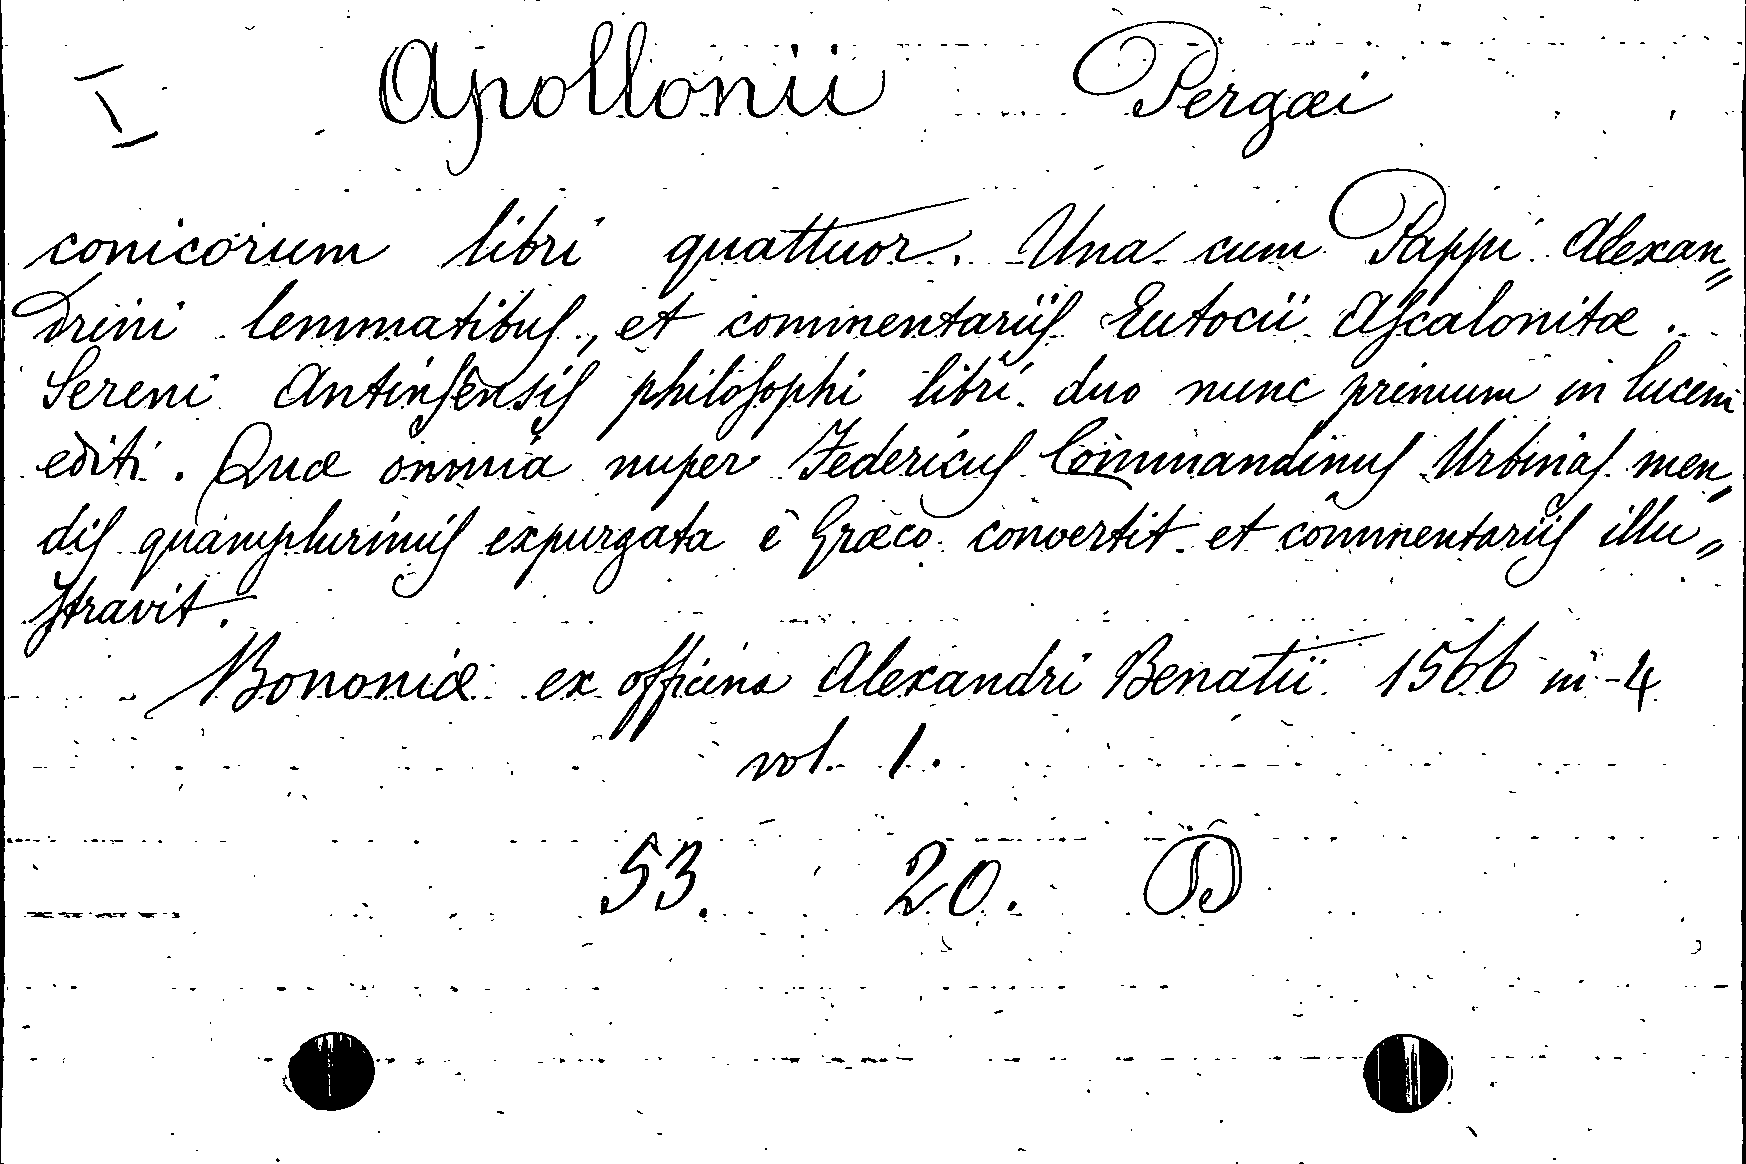 I Apollonii Pergæi
conicorum libri quattuor. Una cum Pappi Alexan„
drini lemmatibus, et commentariis Eutocii Ascalonitæ.
Sereni Antinsensis philosophi libri duo nunc primum in lucem
editi. Quæ omnia nuper Federicus Commandinus Urbinas men„
dis quamplurimis expurgata è Græco convertit et commentariis illu„
stravit.
Bononiæ ex officina Alexandri Benatii 1566 in-4
vol. 1.
53. 20. D